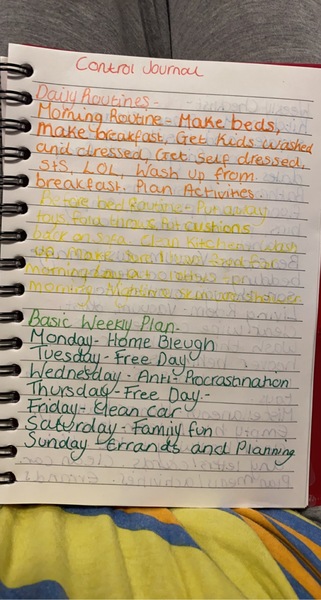 Control Journal
Daily Routines -
Morning Routine - Make beds,
make breakfast, Get kids washed
and dressed, Get self dressed,
StS, LOL, Wash up from
breakfast. Plan Activities.
Before bed Routine - Put away
toys fold throws Put cushions
back on sofa. Clean Kitchen
up, make
morning
morning
Basic Weekly Plan -
Monday - Home Bleugh
Tuesday - Free Day
Wednesday - Anti - Procrastination
Thursday - Free Day -
Friday - Clean car
Saturday - Family fun
Sunday - Errands and Planning